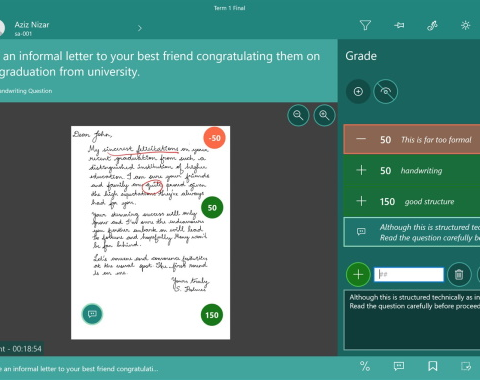 Term 1 Final
Aziz Nizar
sa-001
an informal letter to your best friend congratulating them on
graduation from university.
ndwriting Question
Grade
Dear John,
My sincerest felicitations on your
recent graduation from such a
distinguished institution of higher
education. I am sure your friends
and family are quite proud given
the high expectations they're always
had for you.
Your stunning success will only
grow and I'm sure the endeavours
you further embark on will lead
to fortune and hopefully fame won't
be far behind.
Let's convene and commence festivities
at the usual spot. The first round
is on me.
Yours truly
S. Holmes
-50
50
150
50 This is far too formal
50 handwriting
150 good structure
Although this is structured tec
Read the question carefully b
##
Although this is structured technically as in
Read the question carefully before proceed
nt - 00:18:54
e an informal letter to your best friend congratulati...